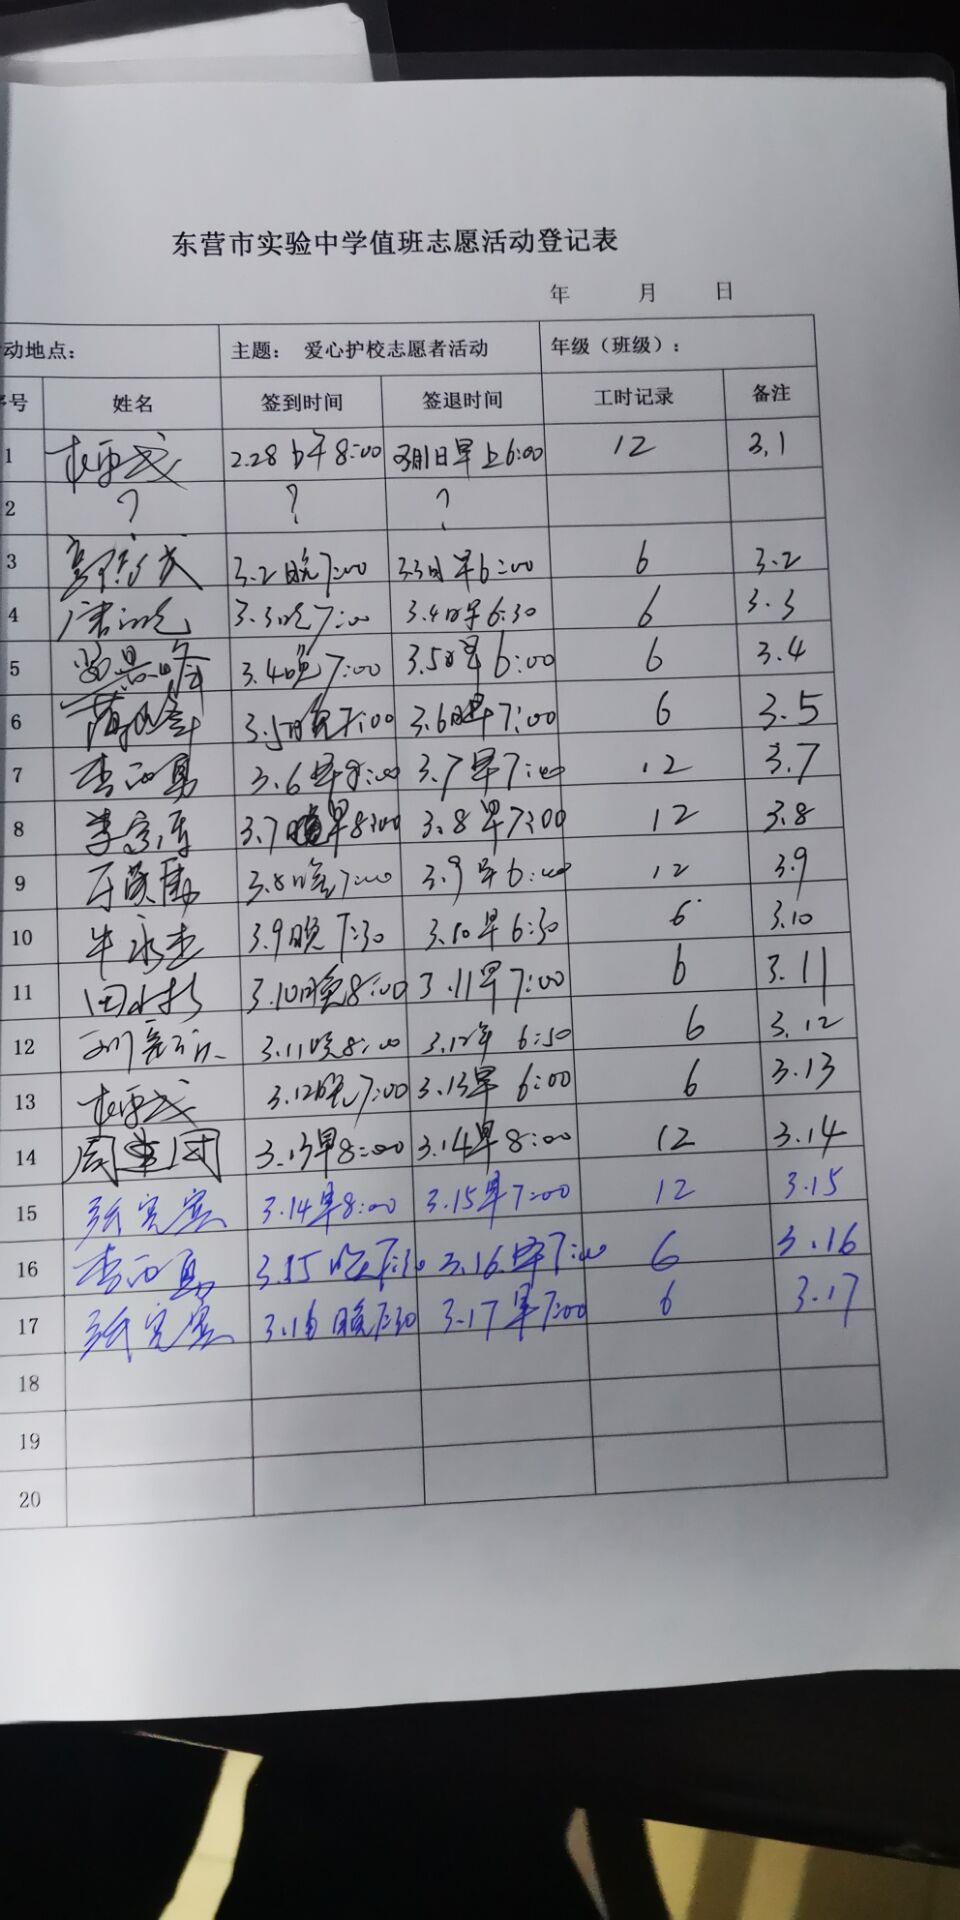 东营市实验中学值班志愿活动登记表
年 月 日
动地点： 主题： 爱心护校志愿者活动 年级（班级）：
序号 姓名 签到时间 签退时间 工时记录 备注
1 2.28 下午8:00 3月1日早上6:00 12 3.1
2 ? ? ?
3 3.2晚7:00 3.3日早6:00 6 3.2
4 3.3晚7:00 3.4日早6:30 6 3.3
5 3.4晚7:00 3.5日早6:00 6 3.4
6 3.5日晚7:00 3.6日早7:00 6 3.5
7 李西勇 3.6早8:00 3.7早7:00 12 3.7
8 3.7早8:00 3.8早7:00 12 3.8
9 3.8晚7:00 3.9早6:00 12 3.9
10 牛永杰 3.9晚7:30 3.10早6:30 6 3.10
11 3.10晚8:00 3.11早7:00 6 3.11
12 3.11晚8:00 3.12早 6:50 6 3.12
13 3.12晚7:00 3.13早 6:00 6 3.13
14 周建团 3.13早8:00 3.14早8:00 12 3.14
15 3.14早8:00 3.15早7:00 12 3.15
16 李西勇 3.15晚7:30 3.16早7:00 6 3.16
17 3.16晚7:30 3.17早7:00 6 3.17
18
19
20